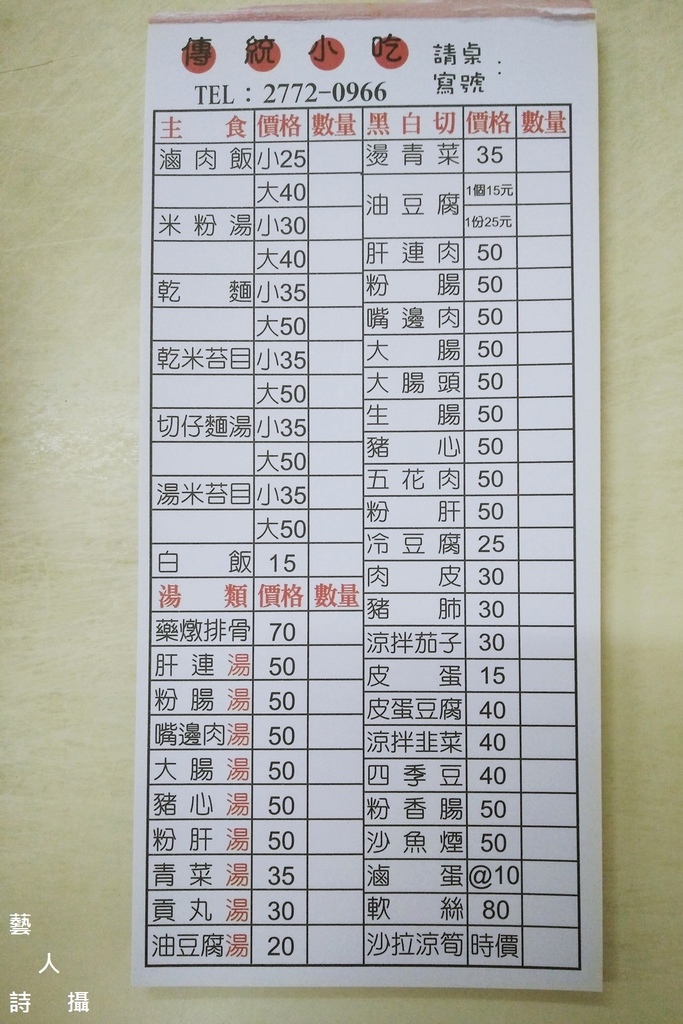 傳統小吃
請寫桌號：
TEL：2772-0966
主食 價格 數量
滷肉飯 小25
大40
米粉湯 小30
大40
乾麵 小35
大50
乾米苔目 小35
大50
切仔麵湯 小35
大50
湯米苔目 小35
大50
白飯 15
湯類 價格 數量
藥燉排骨 70
肝連湯 50
粉腸湯 50
嘴邊肉湯 50
大腸湯 50
豬心湯 50
粉肝湯 50
青菜湯 35
貢丸湯 30
油豆腐湯 20
黑白切 價格 數量
燙青菜 35
油豆腐 1個15元
1份25元
肝連肉 50
粉腸 50
嘴邊肉 50
大腸 50
大腸頭 50
生腸 50
豬心 50
五花肉 50
粉肝 50
冷豆腐 25
肉皮 30
豬肺 30
涼拌茄子 30
皮蛋 15
皮蛋豆腐 40
涼拌韭菜 40
四季豆 40
粉香腸 50
沙魚煙 50
滷蛋 @10
軟絲 80
沙拉涼筍 時價
藝人詩攝